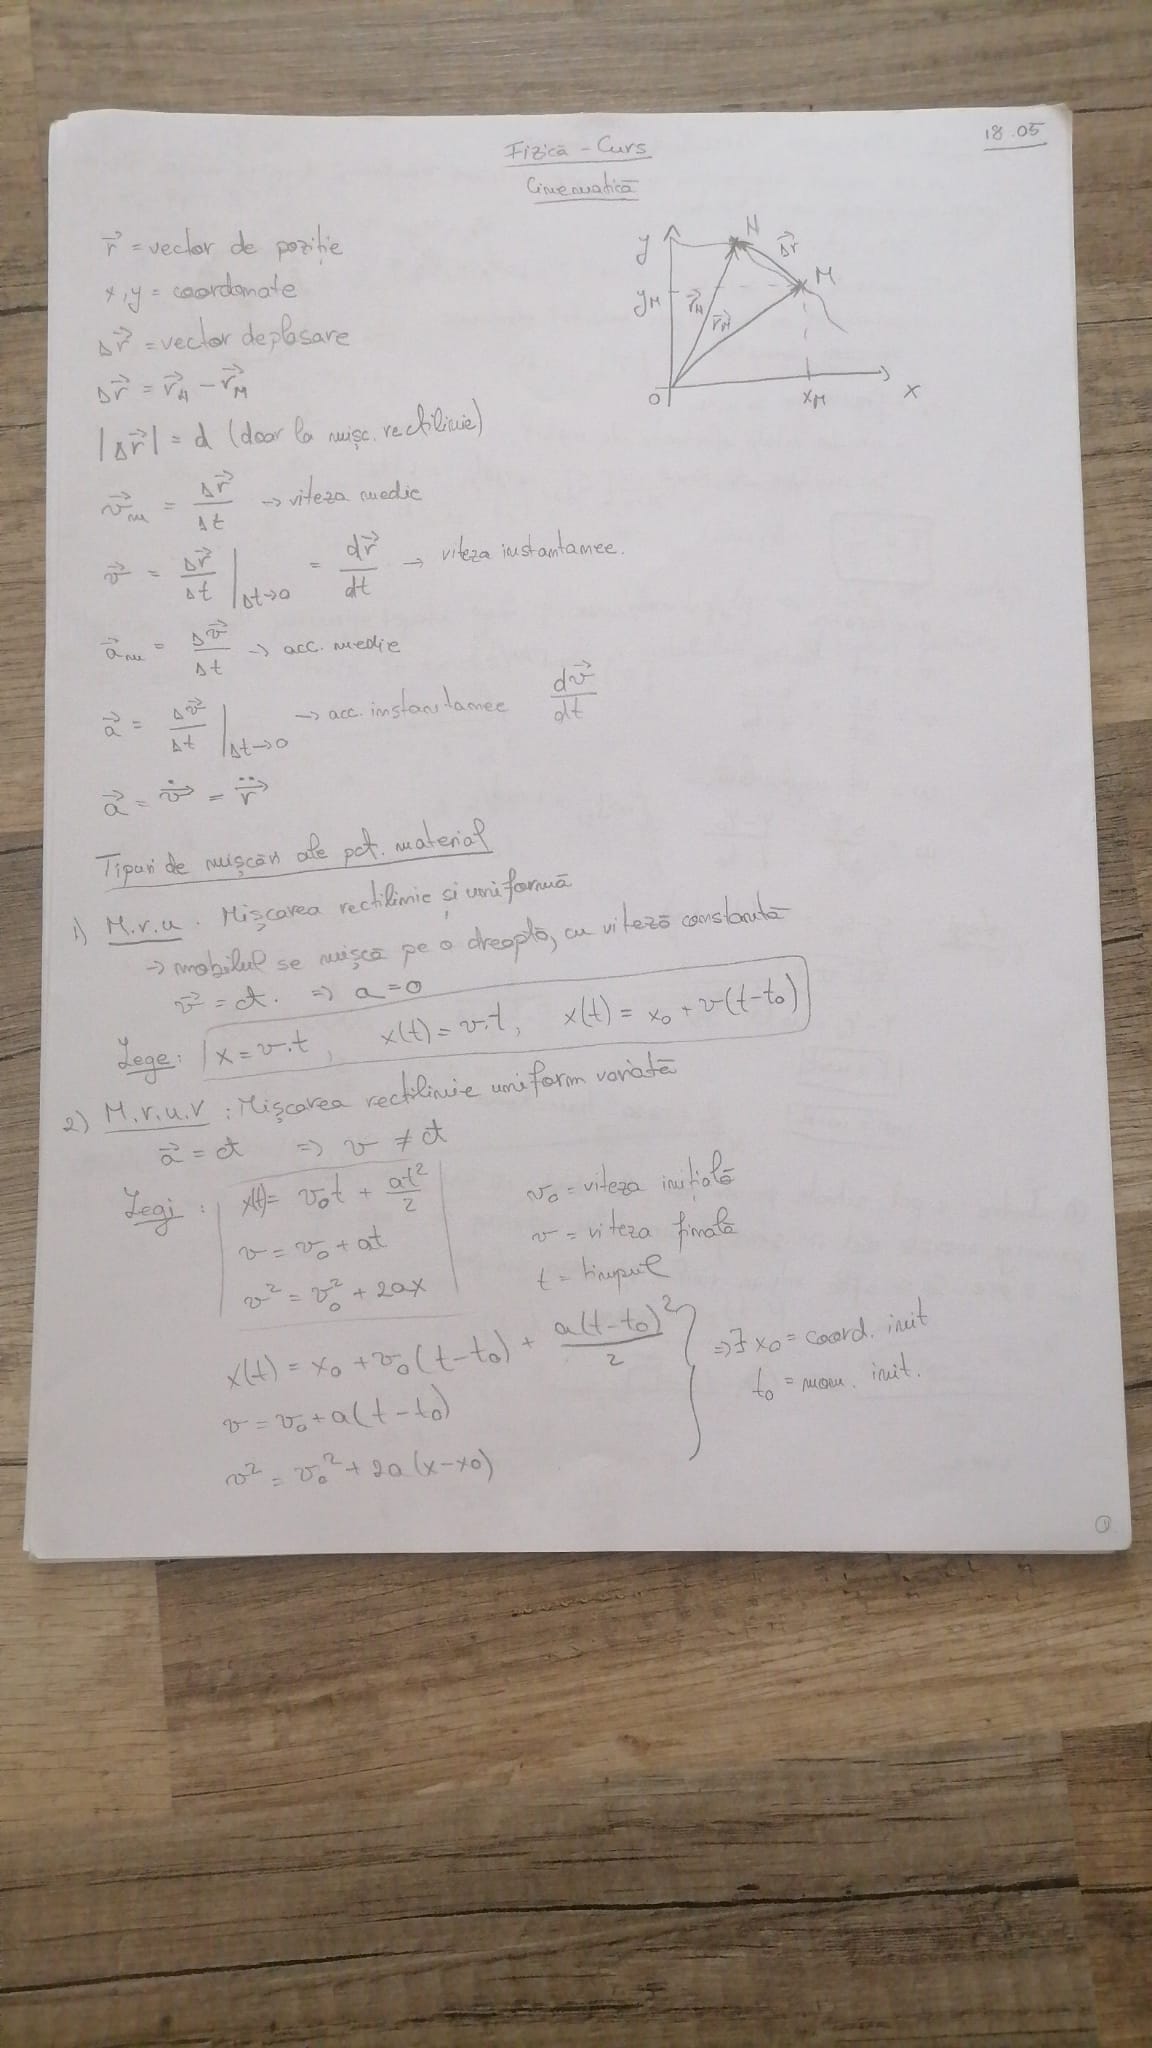 18.05
Fizică - Curs
Cinematică
r⃗ = vector de poziție
x, y = coordonate
Δr⃗ = vector deplasare
Δr⃗ = r⃗_N - r⃗_M
|Δr⃗| = d (doar la mișc. rectilinie)
y N Δr⃗ M
y_M r⃗_N r⃗_M
O x_M x
v⃗_m = Δr⃗/Δt → viteza medie
v⃗ = Δr⃗/Δt |Δt→0 = dr⃗/dt → viteza instantanee.
a⃗_m = Δv⃗/Δt → acc. medie
a⃗ = Δv⃗/Δt |Δt→0 → acc. instantanee dv⃗/dt
a⃗ = v⃗̇ = r⃗̈
Tipuri de mișcări ale pct. material
1) M.r.u. Mișcarea rectilinie și uniformă
→ mobilul se mișcă pe o dreaptă, cu viteză constantă
v⃗ = ct. ⇒ a = 0
Lege: x = v·t, x(t) = v·t, x(t) = x₀ + v(t-t₀)
2) M.r.u.v : Mișcarea rectilinie uniform variată
a⃗ = ct ⇒ v ≠ ct
Legi: x(t) = v₀t + at²/2
v = v₀ + at
v² = v₀² + 2ax
v₀ = viteza inițială
v = viteza finală
t = timpul
x(t) = x₀ + v₀(t-t₀) + a(t-t₀)²/2
v = v₀ + a(t-t₀)
v² = v₀² + 2a(x-x₀)
⇒ ∃ x₀ = coord. init
t₀ = mom. init.
1